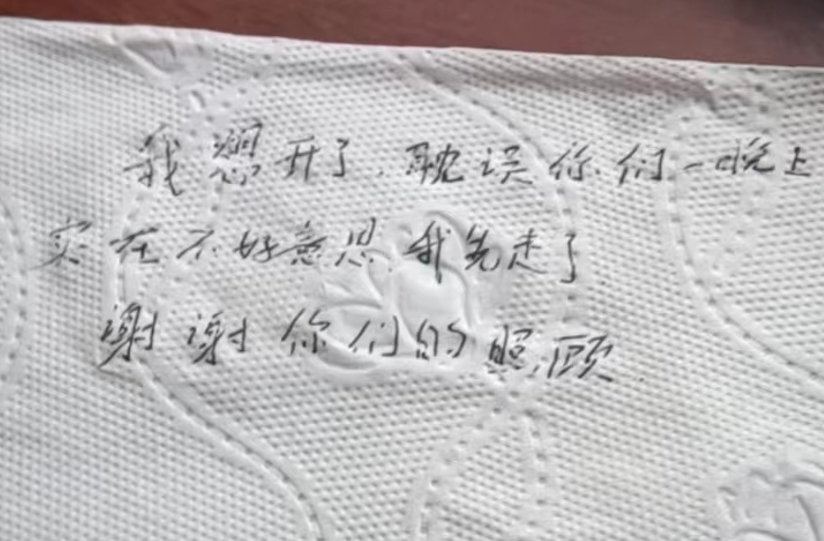 我想开了，耽误你们一晚上
实在不好意思，我先走了
谢谢你们的照顾